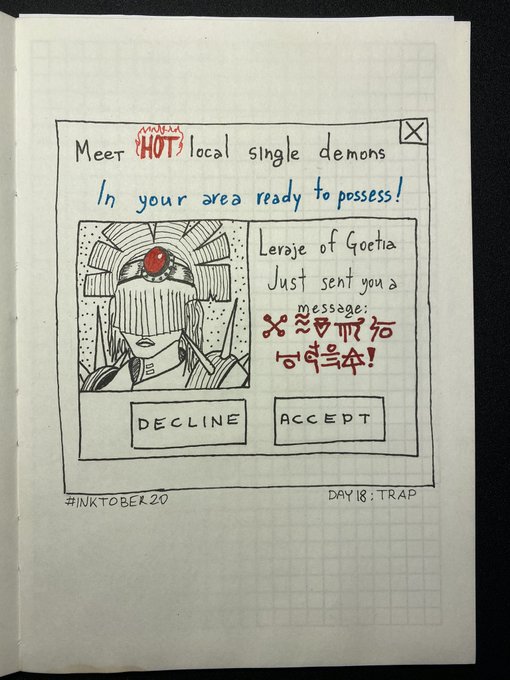 Meet HOT local single demons
In your area ready to possess!
Leraje of Goetia
Just sent you a
message:
DECLINE
ACCEPT
#INKTOBER20
DAY 18: TRAP